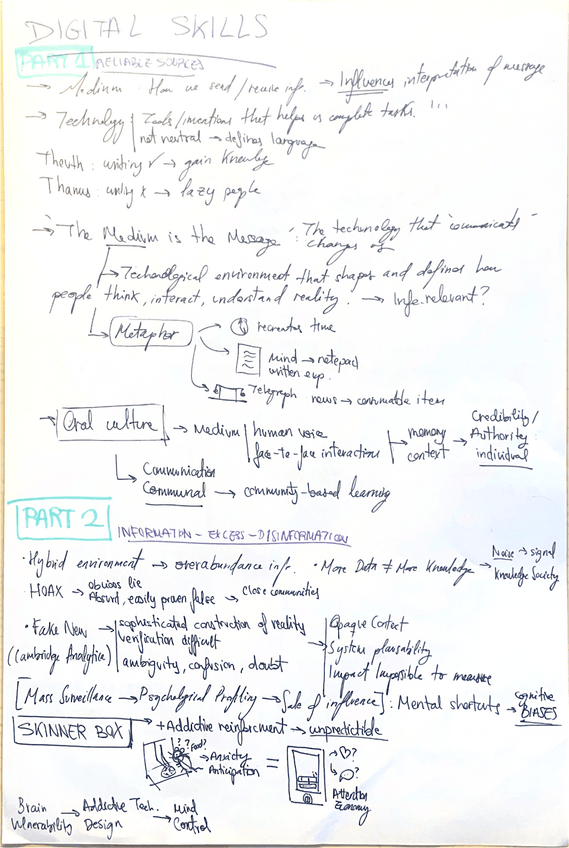 DIGITAL SKILLS
PART 1 RELIABLE SOURCES
→ Medium: How we send/receive info. → Influences interpretation of message
→ Technology | Tools/inventions that helps us complete tasks. '''
not neutral → defines language
Theuth: writing ✓ → gain Knowledge
Thamus: writing x → lazy people
→ The Medium is the Message: The technology that "comunicates"
changes of
→ Technological environment that shapes and defines how
people think, interact, understand reality. → Info. relevant?
Metaphor → recreates time
Mind → notepad
written exp.
Telegraph news → consumable item
→ Oral culture → Medium | human voice
face-to-face interactions
memory
context → Credibility/
Authority:
individual
Communication
Communal → community-based learning
PART 2 INFORMATION - EXCESS - DISINFORMATION
· Hybrid environment → overabundance info. · More Data ≠ More Knowledge → Noise → signal
Knowledge Society
· HOAX → obvious lie
Absurd, easily proven false → Close communities
· Fake New → sophisticated construction of reality
verification difficult
(Cambridge Analytica)
ambiguity, confusion, doubt
Opaque Context
→ System plausability
Impact Impossible to measure
[Mass Surveillance → Psychological Profiling → Sale of influence]: Mental shortcuts → cognitive
BIASES
SKINNER BOX → + Addictive reinforcment → unpredictible
? ? Food?
→ Anxiety
Anticipation
=
→ ♡?
→ ?
Attention
Economy
Brain
Vulnerability → Addictive Tech.
Design → Mind
Control